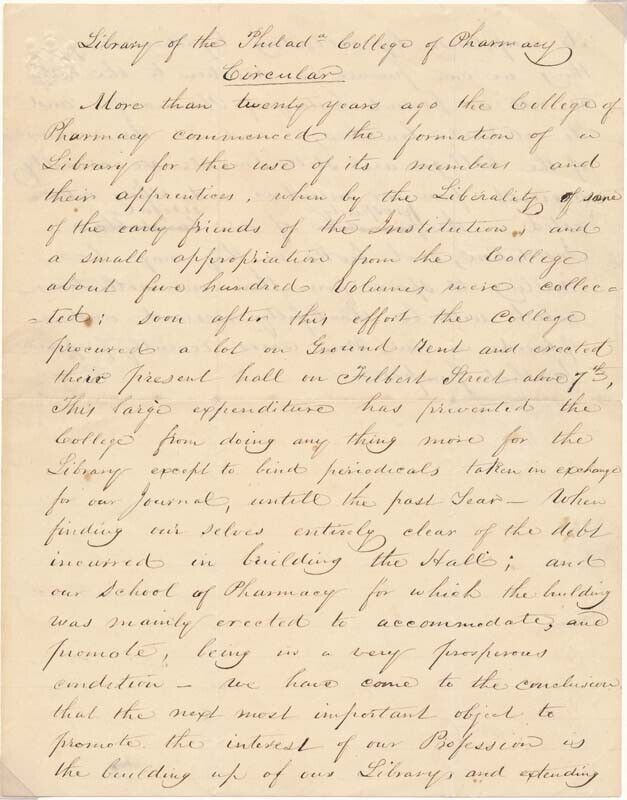 Library of the Philada College of Pharmacy
Circular
More than twenty years ago the College of
Pharmacy commenced the formation of a
Library for the use of its members and
their apprentices, when by the Liberality of some
of the early friends of the Institution, and
a small appropriation from the College
about five hundred Volumes were collec-
-ted; soon after this effort the College
procured a lot on Ground rent and erected
their present hall on Filbert Street above 7th,
This large expenditure has prevented the
College from doing any thing more for the
Library except to bind periodicals taken in exchange
for our Journal, untill the past Year — When
finding our selves entirely clear of the debt
incurred in building the Hall; and
our School of Pharmacy for which the building
was mainly erected to accommodate, and
promote, being in a very prosperous
condition — we have come to the conclusion
that the next most important object to
promote the interest of our Profession is
the building up of our Library, and extending